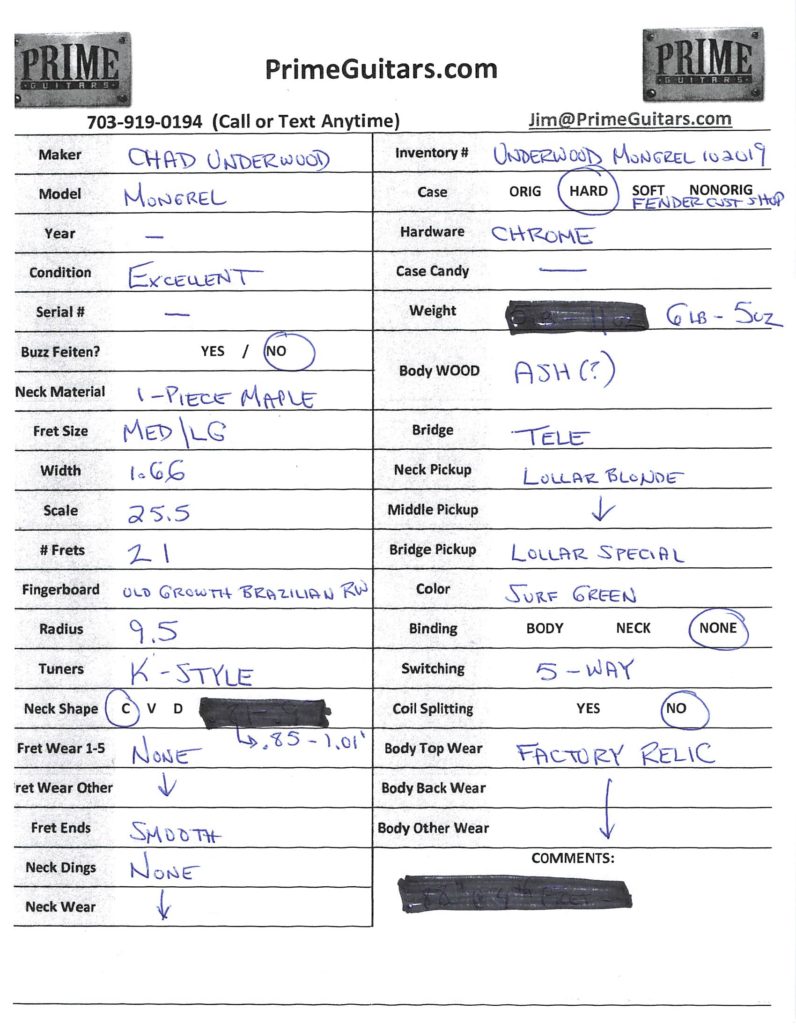 PRIME
GUITARS
PrimeGuitars.com
PRIME
GUITARS
703-919-0194 (Call or Text Anytime)
Jim@PrimeGuitars.com
Maker CHAD UNDERWOOD
Model MONGREL
Year —
Condition EXCELLENT
Serial # —
Buzz Feiten? YES / NO
Neck Material 1-PIECE MAPLE
Fret Size MED/LG
Width 1.66
Scale 25.5
# Frets 21
Fingerboard OLD GROWTH BRAZILIAN RW
Radius 9.5
Tuners K-STYLE
Neck Shape C V D
.85-1.01"
Fret Wear 1-5 NONE
ret Wear Other ↓
Fret Ends SMOOTH
Neck Dings NONE
Neck Wear ↓
Inventory # UNDERWOOD MONGREL 102019
Case ORIG HARD SOFT NONORIG
FENDER CUST SHOP
Hardware CHROME
Case Candy —
Weight 6LB-5OZ
Body WOOD ASH (?)
Bridge TELE
Neck Pickup LOLLAR BLONDE
Middle Pickup ↓
Bridge Pickup LOLLAR SPECIAL
Color SURF GREEN
Binding BODY NECK NONE
Switching 5-WAY
Coil Splitting YES NO
Body Top Wear FACTORY RELIC
Body Back Wear
Body Other Wear ↓
COMMENTS: